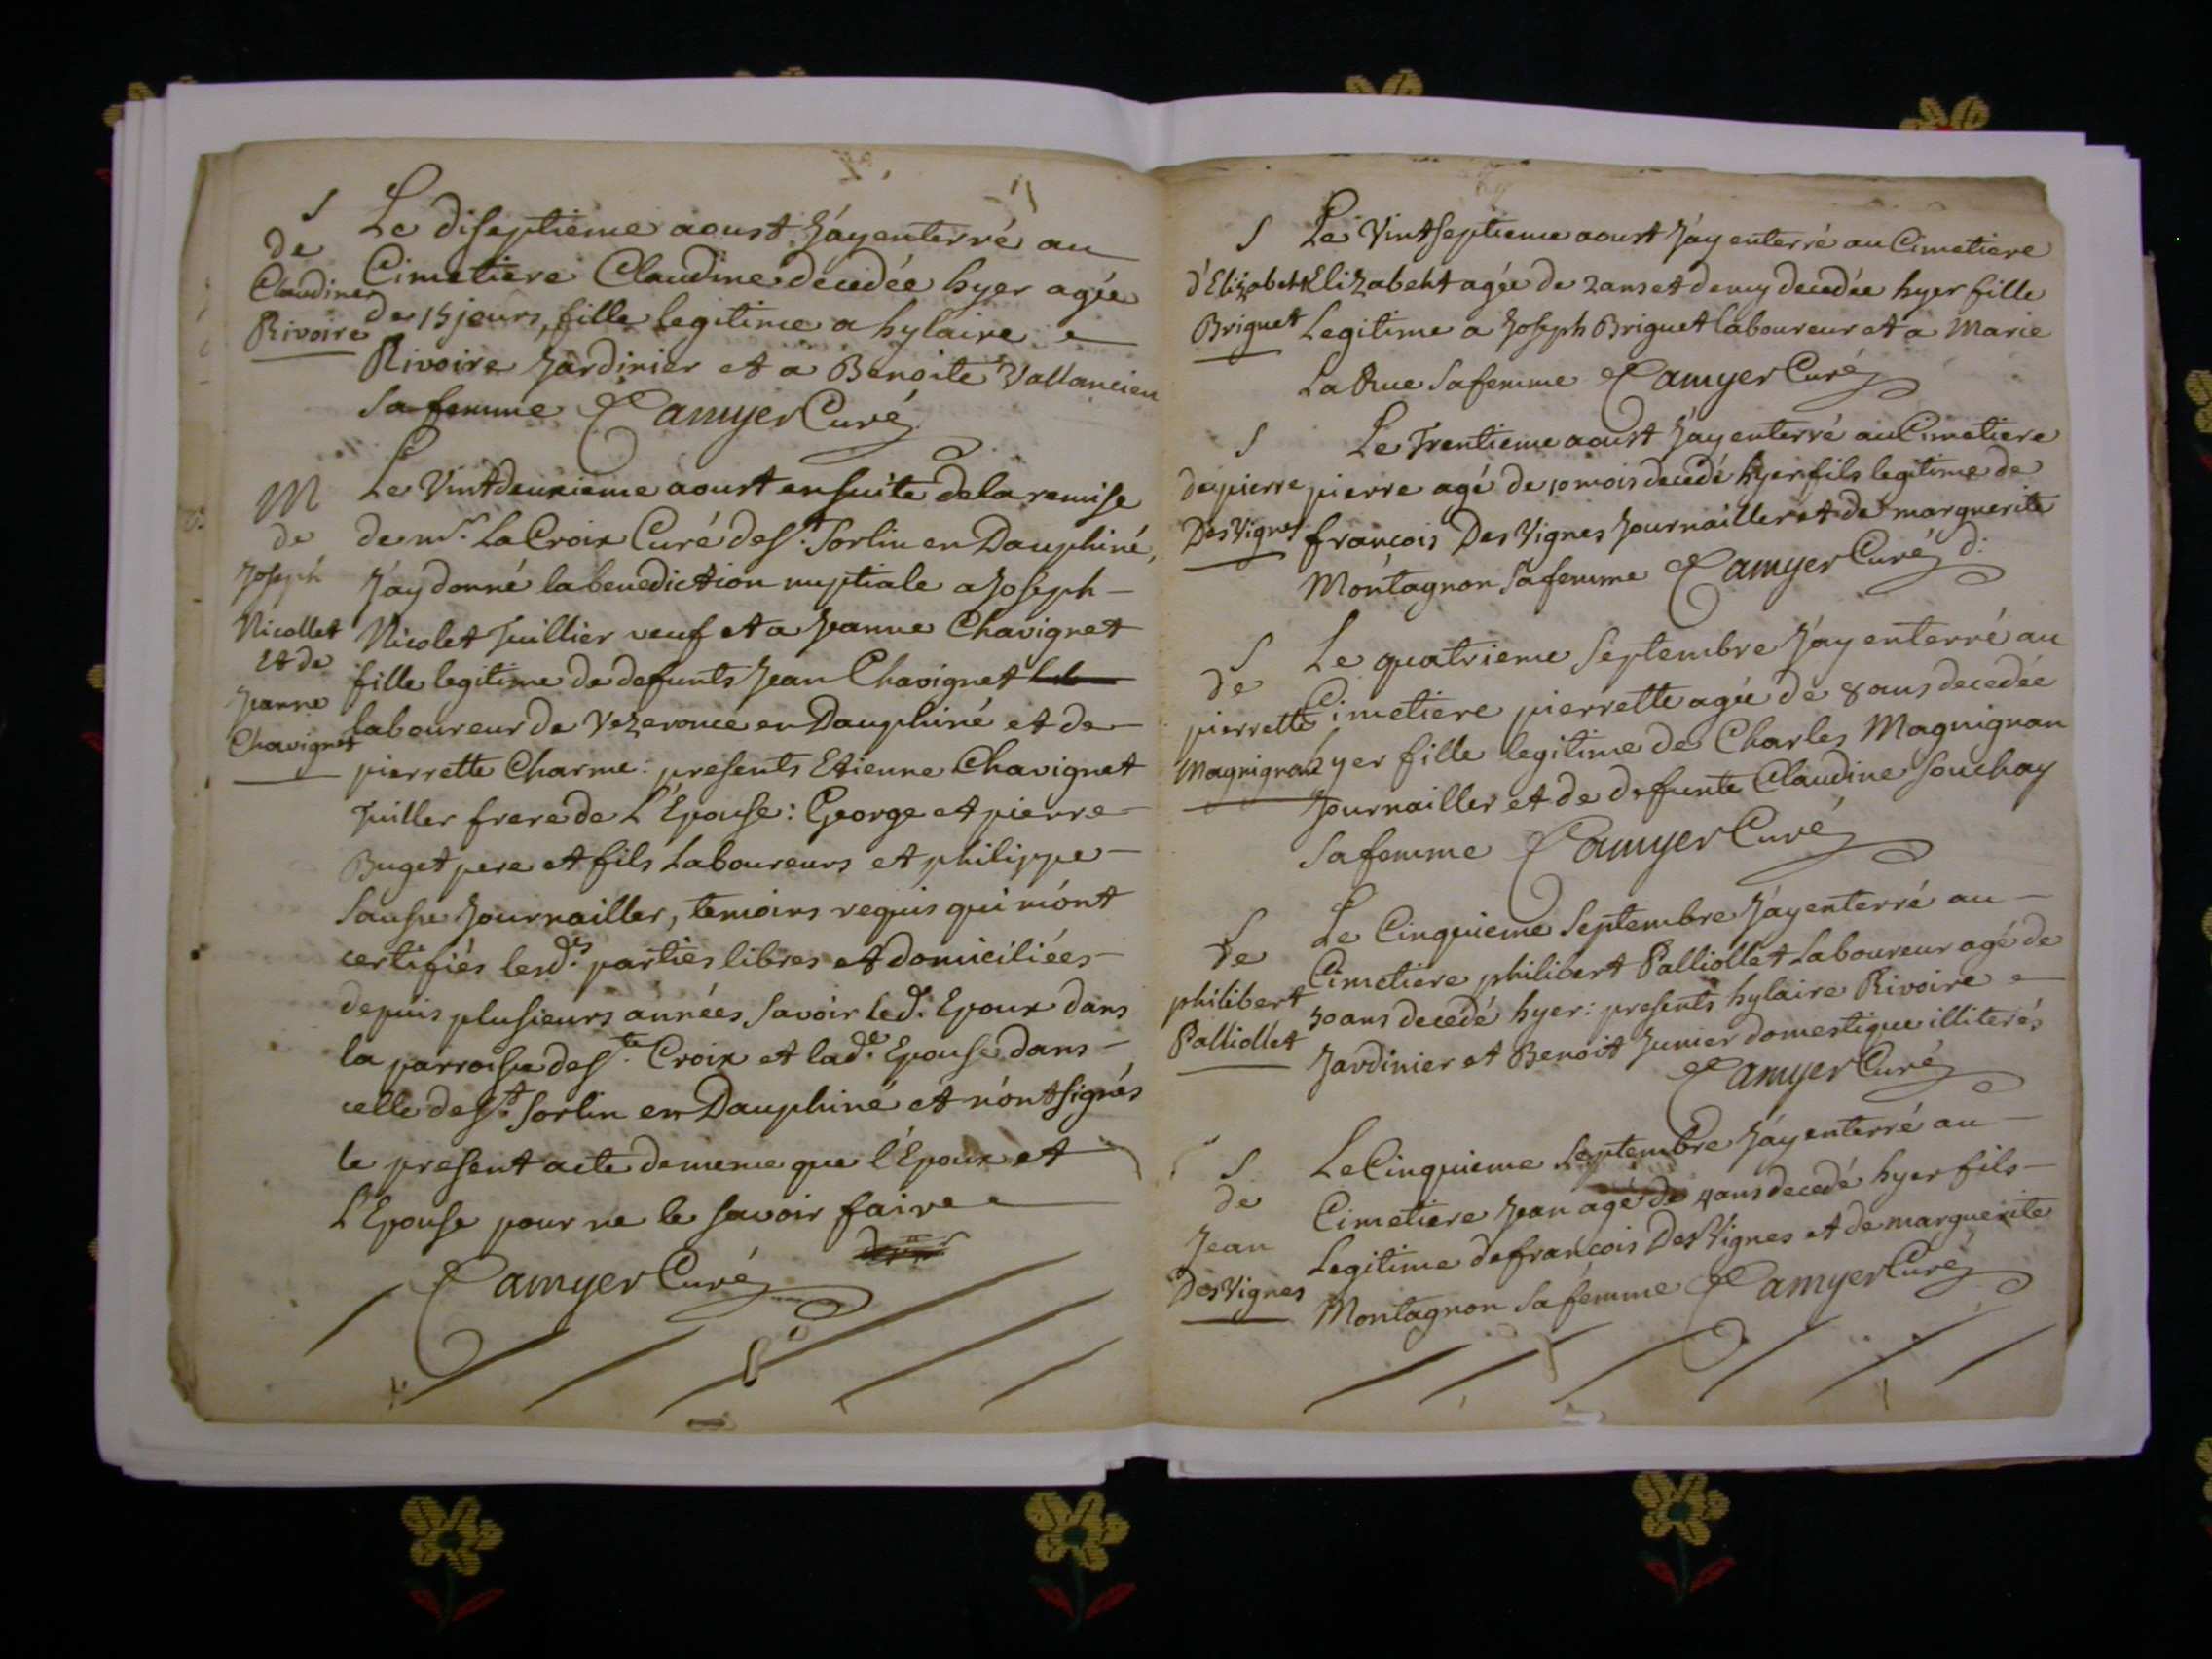 S
de
Claudine
Rivoire
Le diseptieme aoust J'ay enterré au
Cimetiere Claudine decedée hyer agée
de 15 jours, fille legitime a hylaire
Rivoire Jardinier et a Benoite Vallancien
sa femme Camyer Curé
M
de
Joseph
Nicollet
Et de
Jeanne
Chavignet
Le Vintdeuxieme aoust ensuite de la remise
de mr. La Croix Curé de St. Sorlin en Dauphiné,
J'ay donné la benediction nuptiale a Joseph
Nicolet Tuillier veuf et a Jeanne Chavignet
fille legitime de defunts Jean Chavignet
laboureur de Vezeronce en Dauphiné et de
pierrette Charme: presents Etienne Chavignet
Tuiller frere de L'Epouse: George et pierre
Buget pere et fils Laboureurs et philippe
Sausse Journailler, temoins requis qui m'ont
certifiés lesd.es parties libres et domiciliées
depuis plusieurs années savoir led. Epoux dans
la parroisse de Ste. Croix et lad.e Epouse dans
celle de St. Sorlin en Dauphiné et n'ont signés
le present acte de meme que l'Epoux et
L'Epouse pour ne le savoir faire
Camyer Curé
S
d'Elizabeht
Briguet
Le Vintseptieme aoust J'ay enterré au Cimetiere
Elizabeht agée de 2 ans et demy decedée hyer fille
Legitime a Joseph Briguet laboureur et a Marie
La Rue sa femme Camyer Curé
S
de pierre
Des Vignes
Le Trentieme aoust J'ay enterré au Cimetiere
pierre agé de 10 mois decedé hyer fils legitime de
francois Des Vignes Journailler et de marguerite
Montagnon sa femme Camyer Curé d.
S
de
pierrette
Magnignan
Le quatrieme Septembre J'ay enterré au
Cimetiere pierrette agée de 8 ans decedée
hyer fille legitime de Charles Magnignan
Journailler et de defunte Claudine Souchay
sa femme Camyer Curé
S
de
philibert
Palliollet
Le Cinquieme Septembre J'ay enterré au
Cimetiere philibert Palliollet Laboureur agé de
50 ans decedé hyer: presents hylaire Rivoire
Jardinier et Benoit Junier domestique illiterés
Camyer Curé
S
de
Jean
Des Vignes
Le Cinquieme Septembre J'ay enterré au
Cimetiere Jean agé de 4 ans decedé hyer fils
Legitime de francois Des Vignes et de marguerite
Montagnon sa femme Camyer Curé